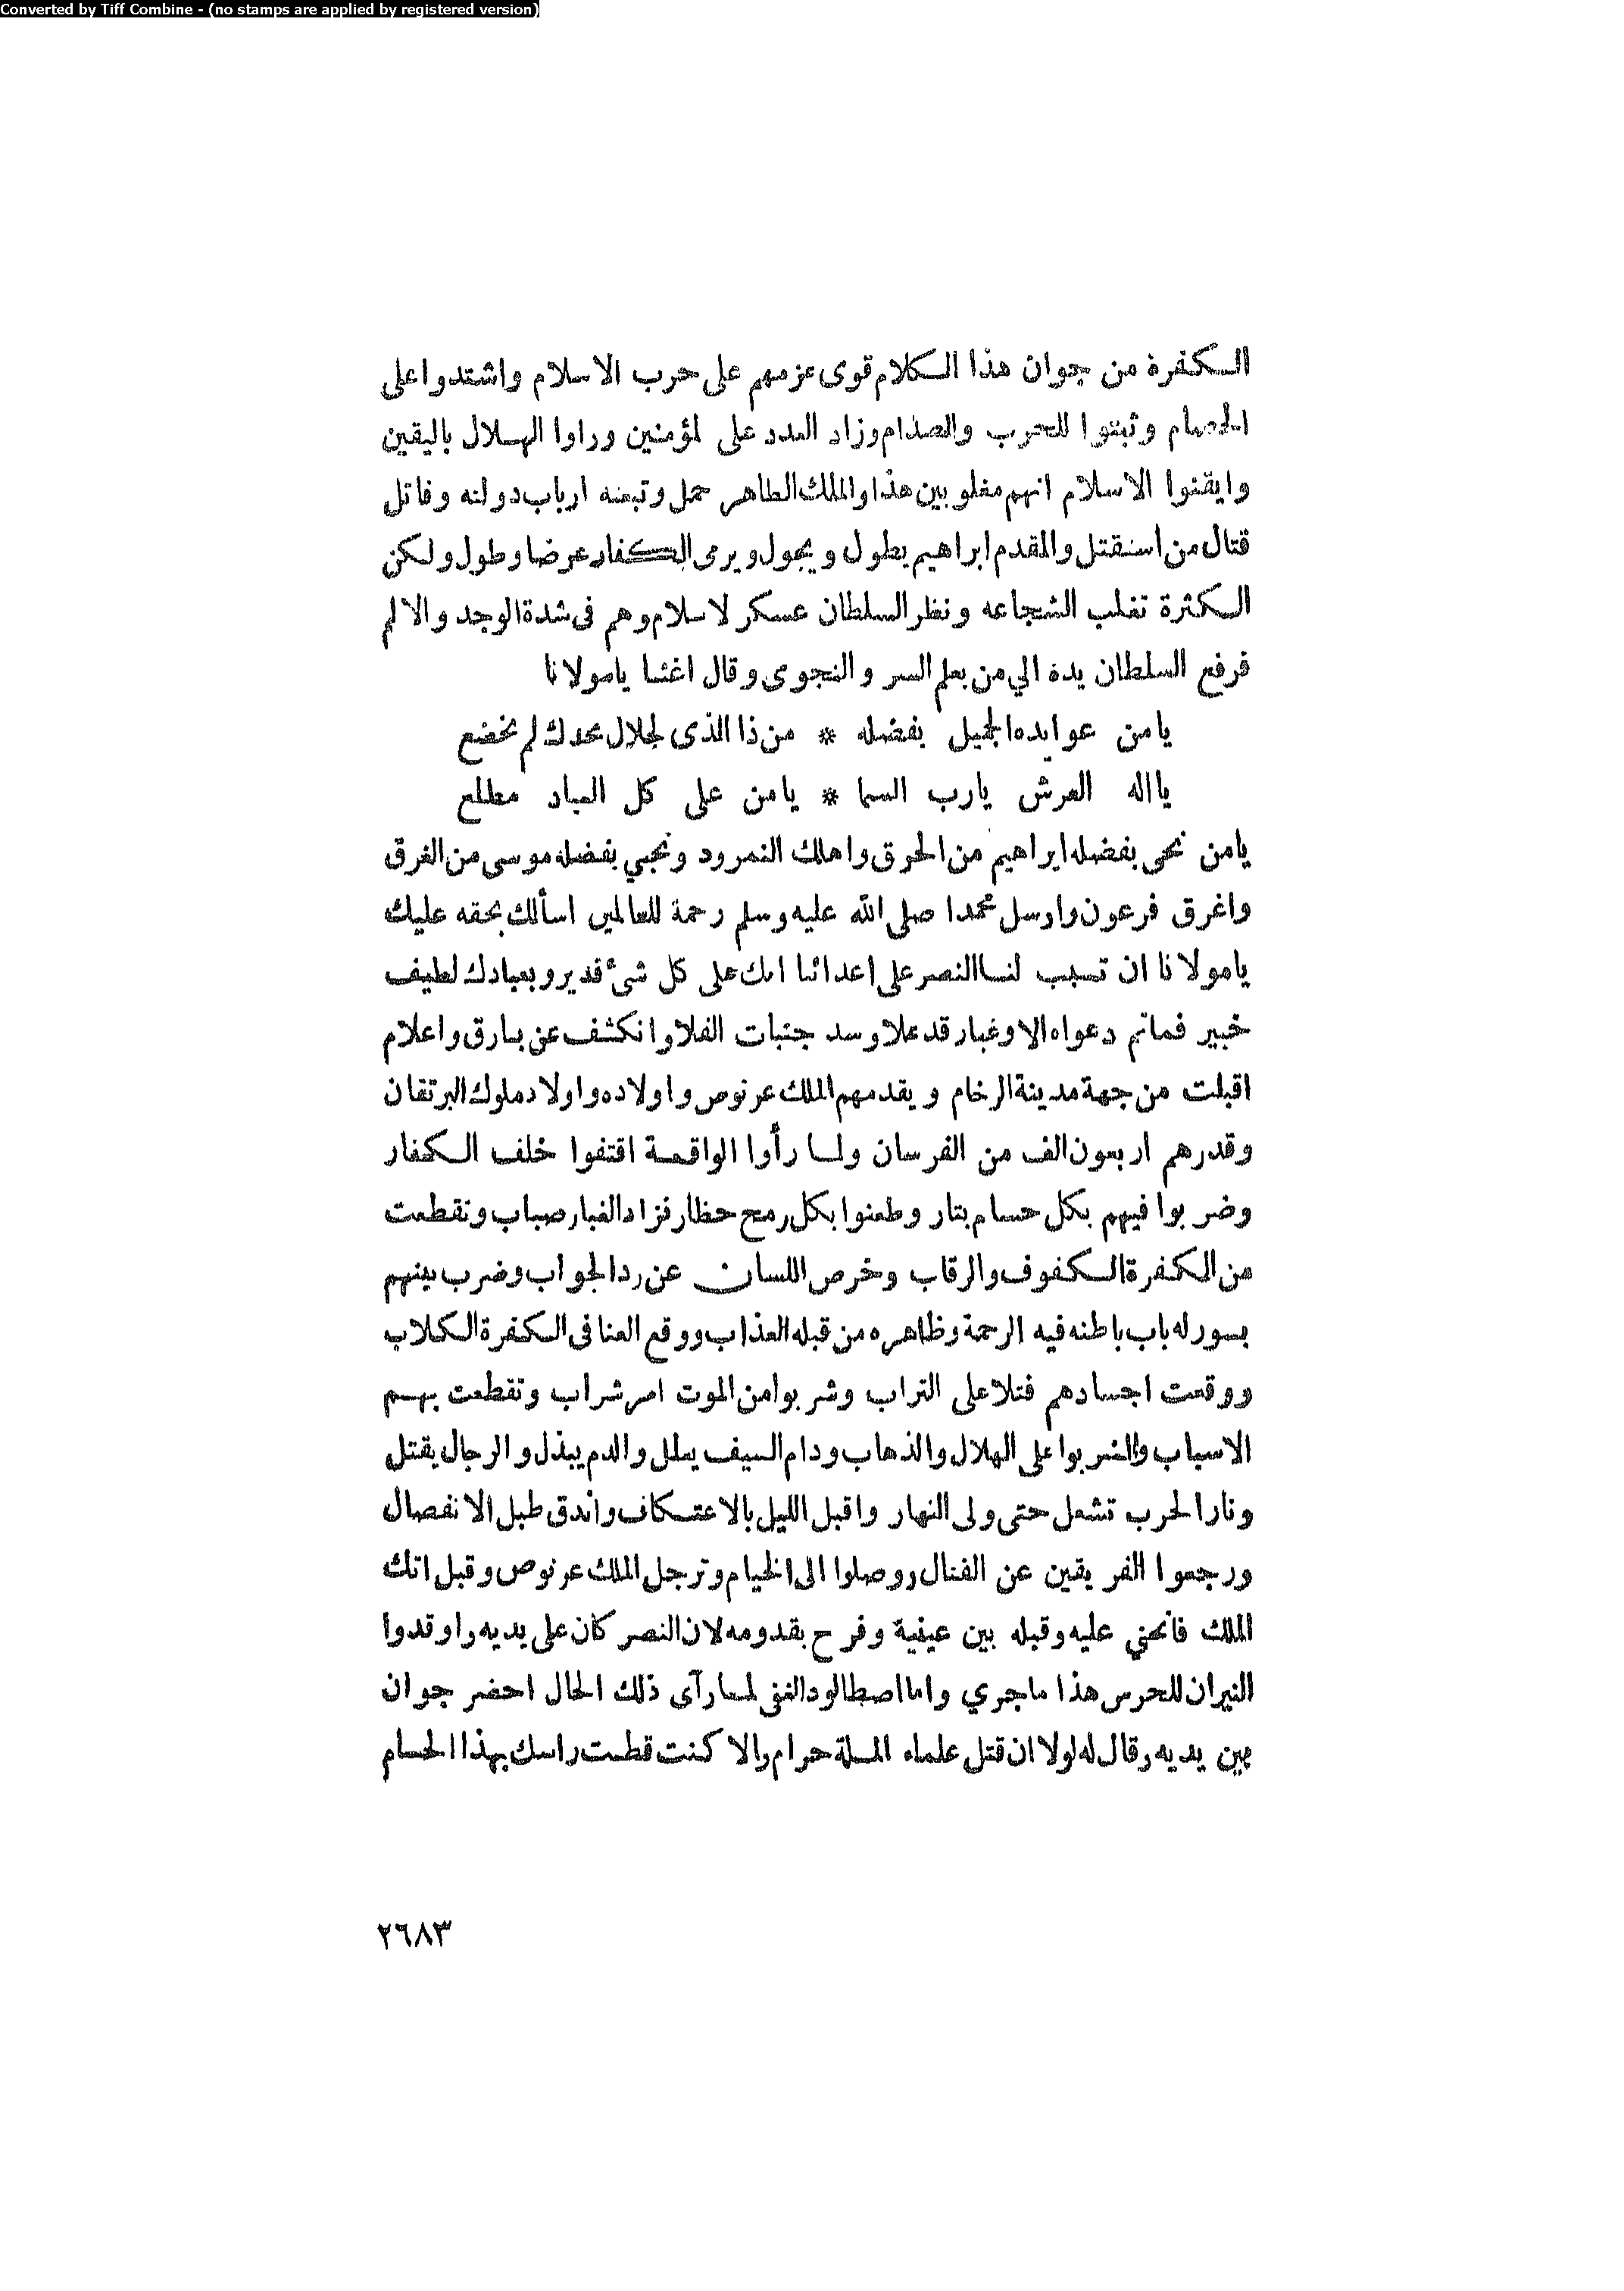 Converted by Tiff Combine - (no stamps are applied by registered version)
الكفرة من جوان هذا الكلام قوى عزمهم على حرب الاسلام واشتدوا على
الخصام وثبتوا للحرب والصدام وزاد العدد على لمؤمنين وراوا الهلال باليقين
وايقنوا الاسلام انهم مغلوبين هذا والملك الظاهر حمل وتبعته ارباب دولته وقاتل
قتال من استقتل والمقدم ابراهيم يطول ويجول ويرمى الكفار عرضا وطول ولكن
الكثرة تغلب الشجاعه ونظر السلطان عسكر لاسلام وهم فى شدة الوجد والالم
فرفع السلطان يده الي من يعلم السر والنجوى وقال اغثنا يامولانا
يامن عوايده الجميل بفضله * من ذا الذى لجلال مجدك لم يخضع
يااله العرش يارب السما * يامن على كل العباد مطلع
يامن نجى بفضله ابراهيم من الحرق واهلك النمرود ونجي بفضله موسى من الغرق
واغرق فرعون وارسل محمدا صلى الله عليه وسلم رحمة للعالمين اسألك بحقه عليك
يامولانا ان تسبب لنا النصر على اعدائنا انك على كل شىء قدير وبعبادك لطيف
خبير فماتم دعواه الا وغبار قد علا وسد جنبات الفلا وانكشف عن بارق واعلام
اقبلت من جهة مدينة الرخام ويقدمهم الملك عرنوص واولاده واولاد ملوك البرتقان
وقدرهم اربعون الف من الفرسان ولما رأوا الواقعة اقتفوا خلف الكفار
وضربوا فيهم بكل حسام بتار وطعنوا بكل رمح خطار فزاد الغبار ضباب وتقطعت
من الكفرة الكفوف والرقاب وخرص اللسان عن رد الجواب وضرب بينهم
بسور له باب باطنه فيه الرحمة وظاهره من قبله العذاب ووقع العنا فى الكفرة الكلاب
ووقعت اجسادهم قتلا على التراب وشربوا من الموت امر شراب وتقطعت بهم
الاسباب والشربوا على الهلال والذهاب ودام السيف يعلل والدم يبذل والرجال يقتل
ونار الحرب تشعل حتى ولى النهار واقبل الليل بالاعتكاف واندق طبل الانفصال
ورجعوا الفريقين عن القتال ووصلوا الى الخيام وترجل الملك عرنوص وقبل اتك
الملك فانحني عليه وقبله بين عينية وفرح بقدومه لان النصر كان على يديه واوقدوا
النيران للحرس هذا ماجري واما اصطالود الغنى لما رآى ذلك الحال احضر جوان
بين يديه وقال له لولا ان قتل علماء الملة حرام والا كنت قطعت راسك بهذا الحسام
٢٦٨٣